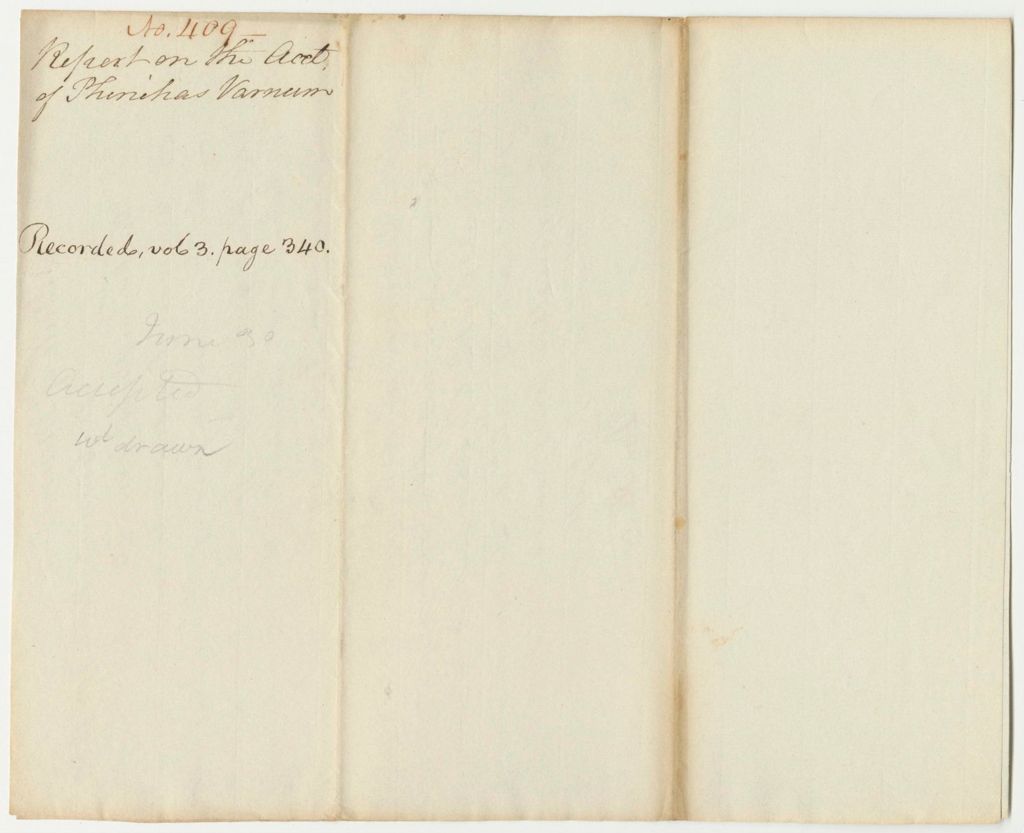 No. 409
Report on the Acct.
of Phinehas Varnum
Recorded, vol 3. page 340.
June 30
Accepted
wt drawn